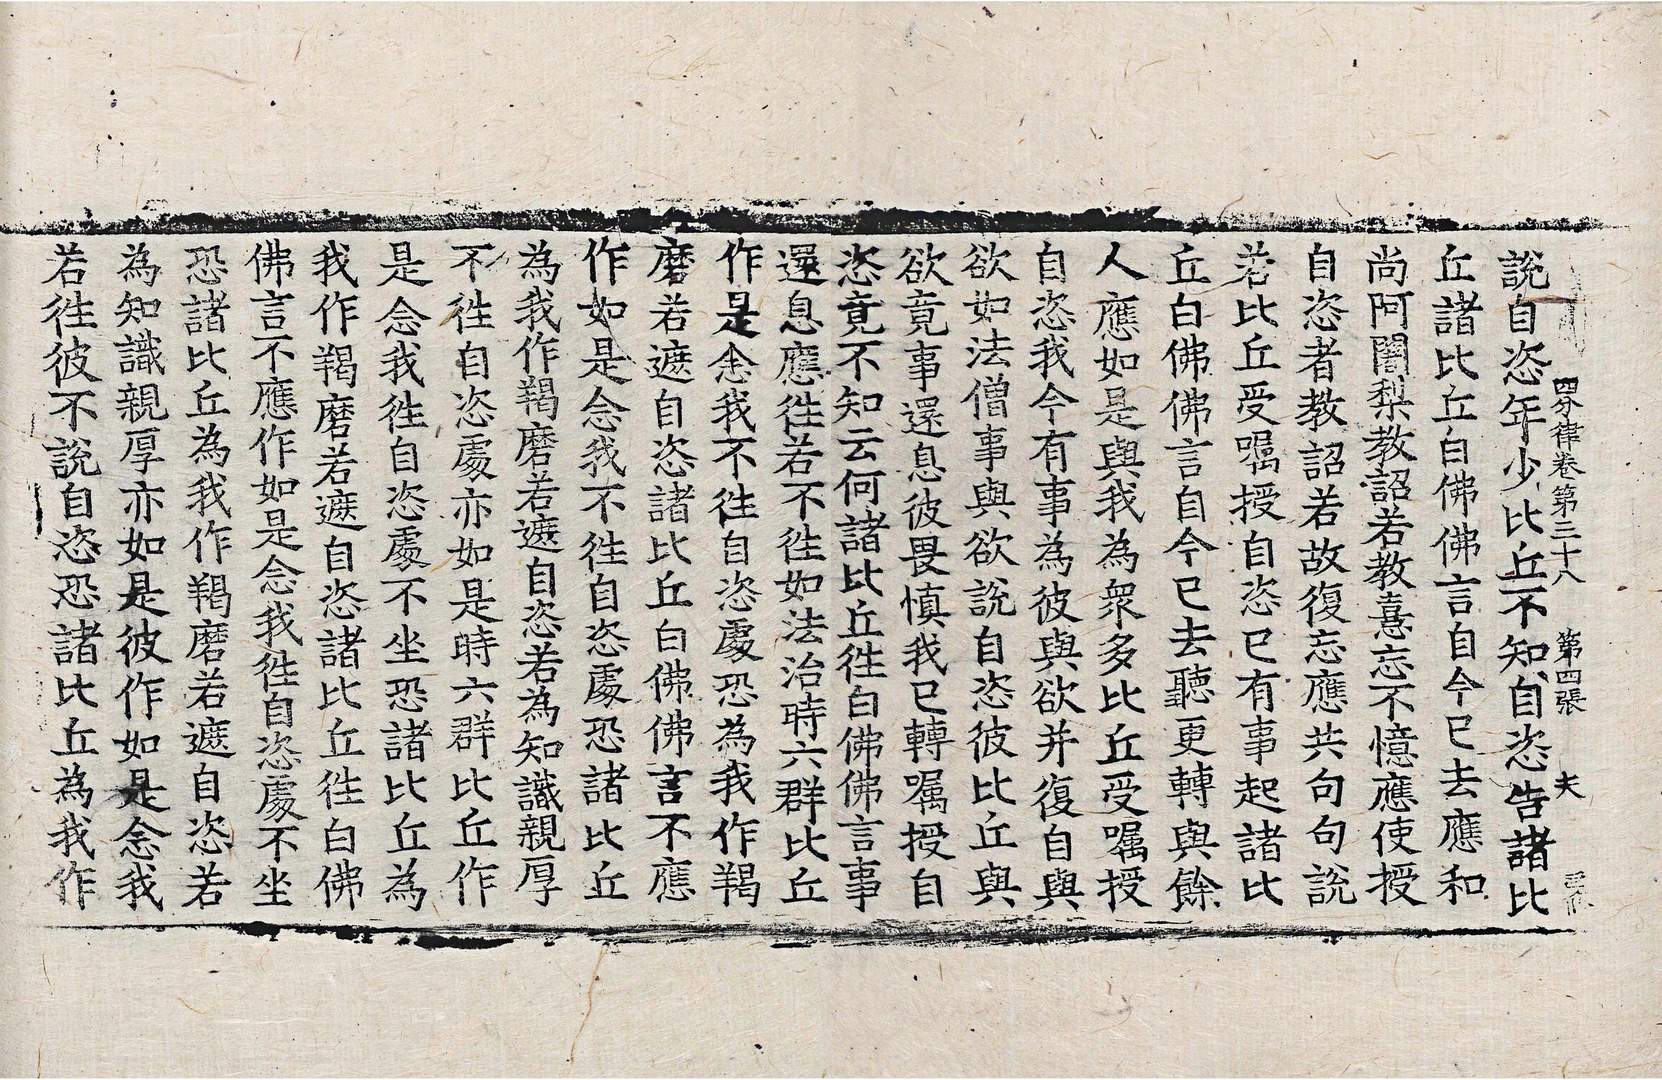 四分律卷第三十八 第四張 夫
說自恣年少比丘不知自恣告諸比
丘諸比丘白佛佛言自今已去應和
尚阿闍梨教詔若教憙忘不憶應使授
自恣者教詔若故復忘應共句句說
若比丘受囑授自恣已有事起諸比
丘白佛佛言自今已去聽更轉與餘
人應如是與我為眾多比丘受囑授
自恣我今有事為彼與欲并復自與
欲如法僧事與欲說自恣彼比丘與
欲竟事還息彼畏慎我已轉囑授自
恣竟不知云何諸比丘往白佛佛言事
還息應往若不往如法治時六群比丘
作是念我不往自恣處恐為我作羯
磨若遮自恣諸比丘白佛佛言不應
作如是念我不往自恣處恐諸比丘
為我作羯磨若遮自恣若為知識親厚
不往自恣處亦如是時六群比丘作
是念我往自恣處不坐恐諸比丘為
我作羯磨若遮自恣諸比丘往白佛
佛言不應作如是念我往自恣處不坐
恐諸比丘為我作羯磨若遮自恣若
為知識親厚亦如是彼作如是念我
若往彼不說自恣恐諸比丘為我作